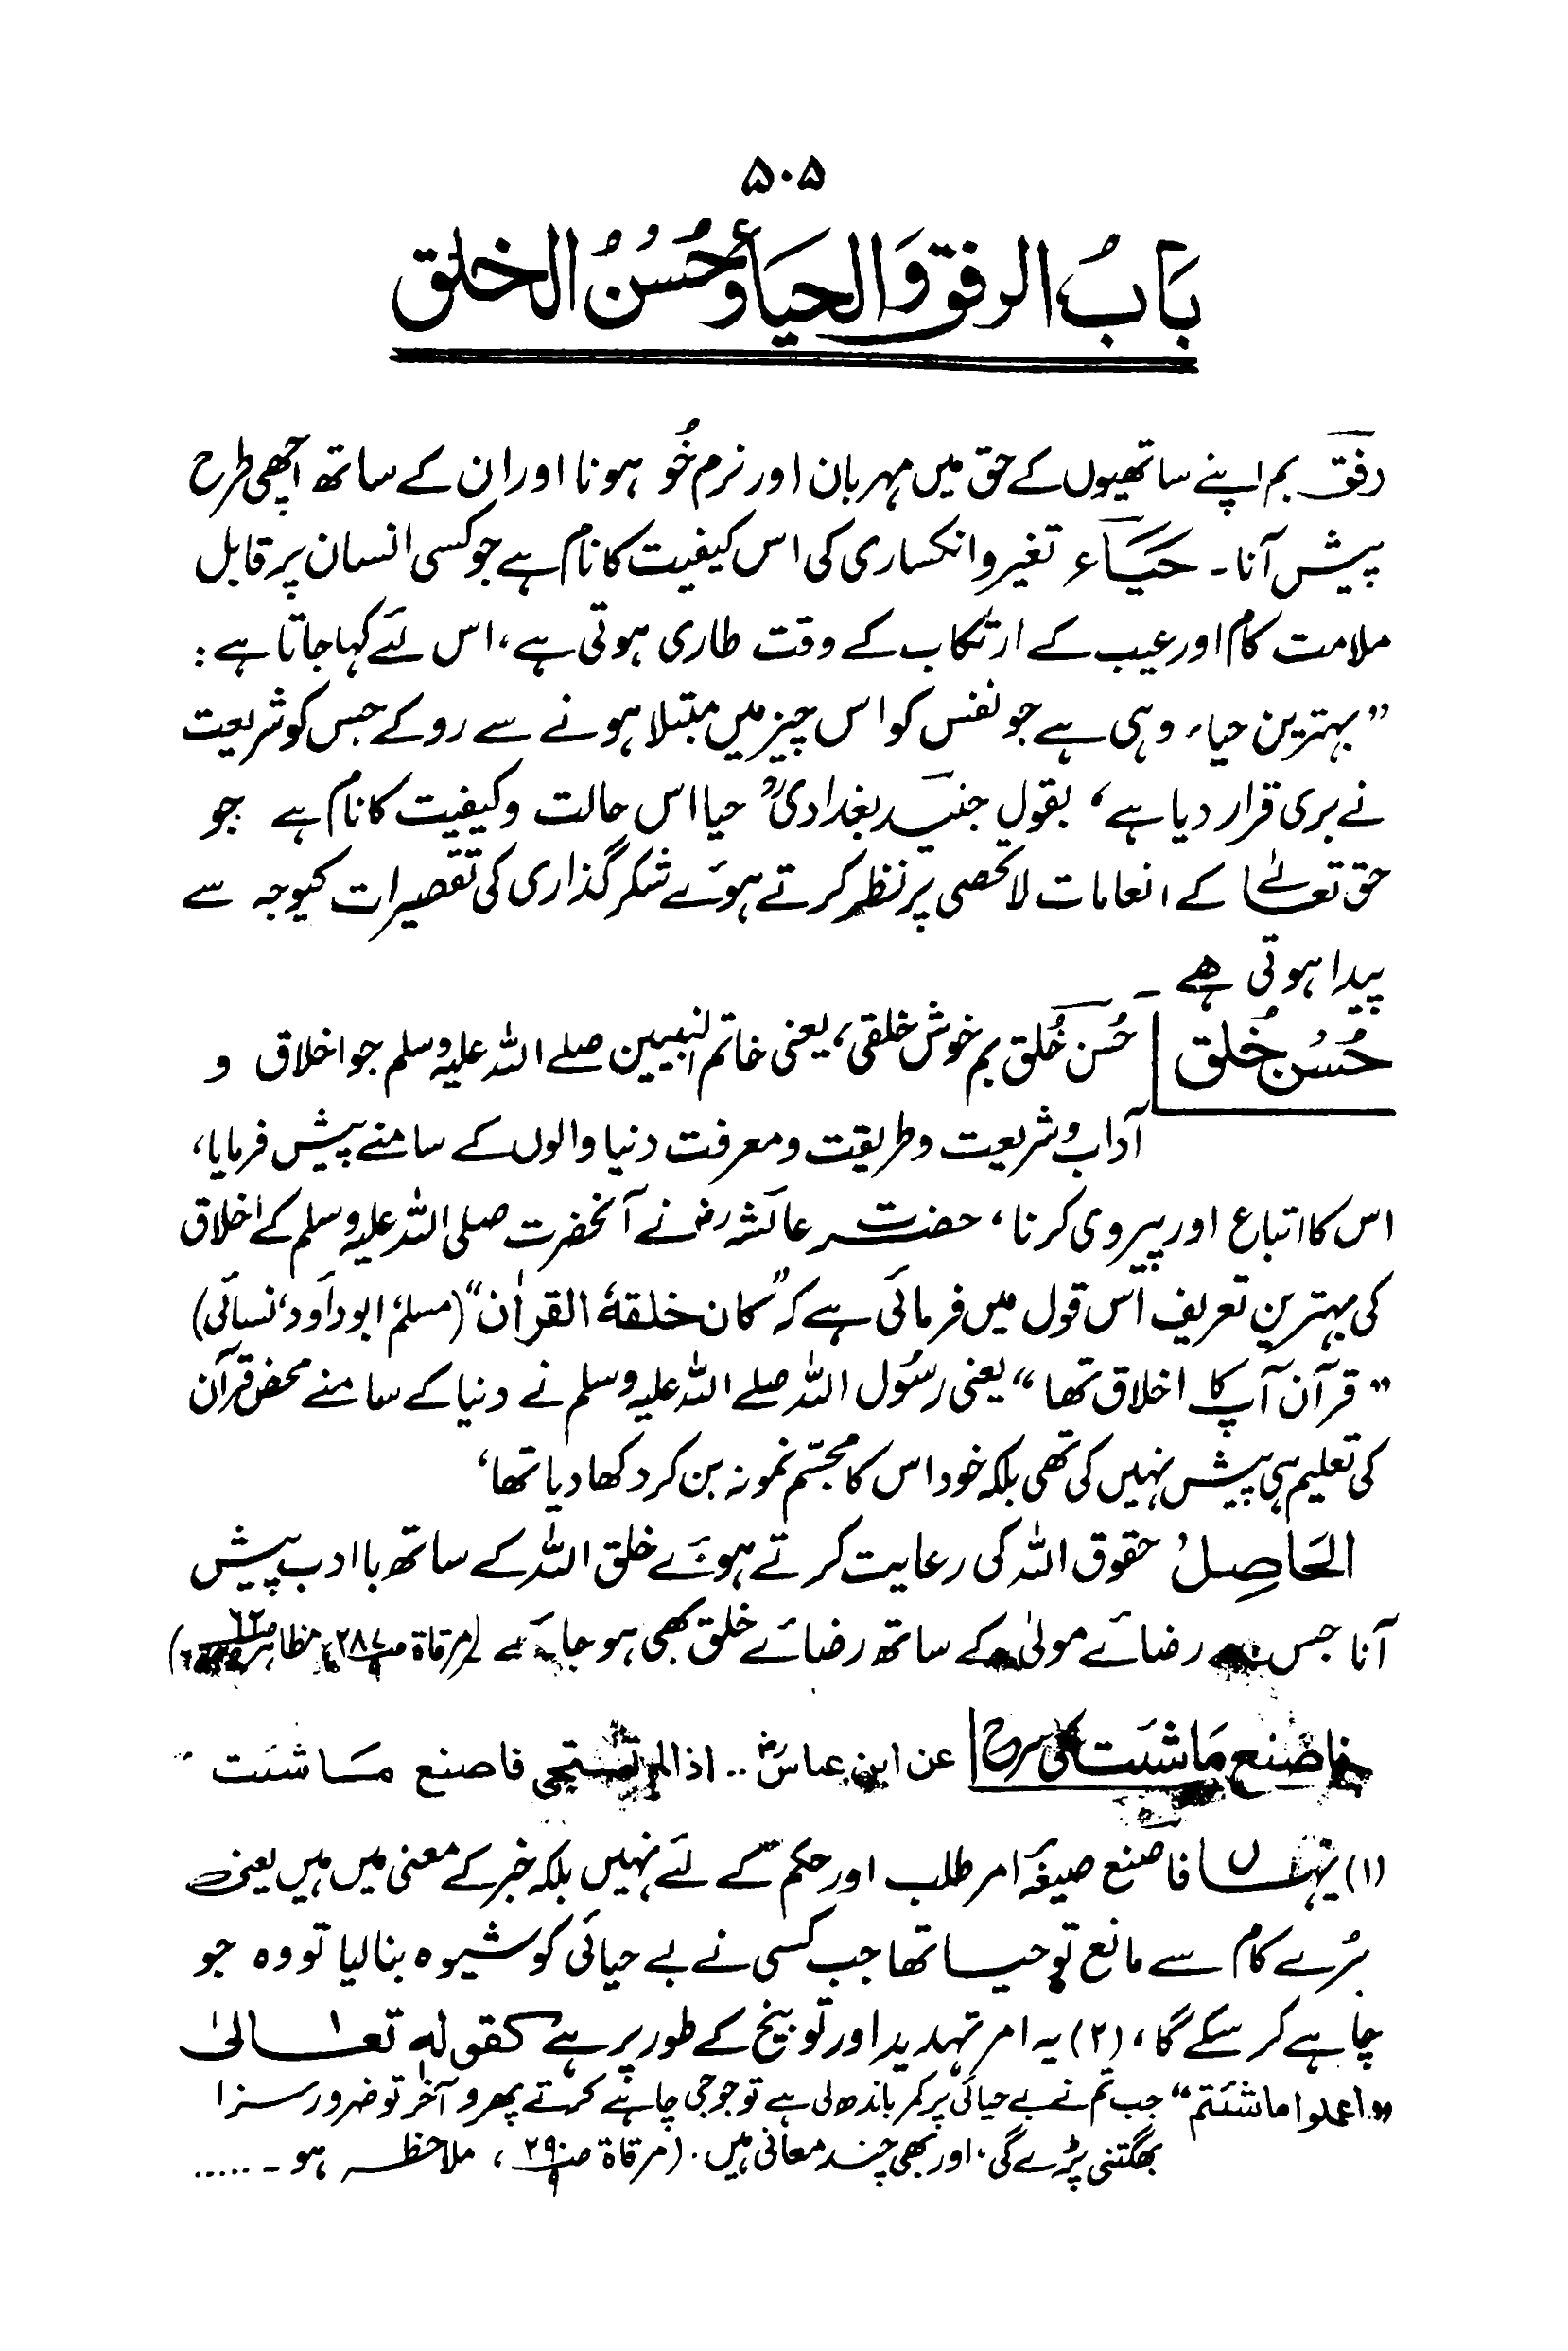 ۵۰۵
بَابُ الرفق وَالحیَاءِ وَحُسُنُ الخلق
رفق بم اپنے ساتھیوں کے حق میں مہربان اور نرم خُو ہونا اور ان کے ساتھ اچھی طرح
پیش آنا ۔ حَیَاء تغیر و انکساری کی اس کیفیت کا نام ہے جو کسی انسان پر قابل
ملامت کام اور عیب کے ارتکاب کے وقت طاری ہوتی ہے، اس لئے کہا جاتا ہے :
” بہترین حیاء وہی ہے جو نفس کو اس چیز میں مبتلا ہونے سے روکے جس کو شریعت
نے بری قرار دیا ہے، بقول جنید بغدادیؒ حیا اس حالت و کیفیت کا نام ہے جو
حق تعالےٰ کے انعامات لا تحصی پر نظر کرتے ہوئے شکر گذاری کی تقصیرات کیوجہ سے
پیدا ہوتی ہے ۔
حُسُن خُلق حُسن خُلق بم خوش خلقی، یعنی خاتم النبیین صلے اللہ علیہ وسلم جو اخلاق و
آداب و شریعت و طریقت و معرفت دنیا والوں کے سامنے پیش فرمایا،
اس کا اتباع اور پیروی کرنا، حضرت عائشہ رضؓ نے آنحضرت صلی اللہ علیہ وسلم کے اخلاق
کی بہترین تعریف اس قول میں فرمائی ہے کہ ”کان خلقهٗ القراٰن“ (مسلم، ابوداؤد، نسائی)
” قرآن آپ کا اخلاق تھا “ یعنی رسُول اللہ صلے اللہ علیہ وسلم نے دنیا کے سامنے محض قرآن
کی تعلیم ہی پیش نہیں کی تھی بلکہ خود اس کا مجسّم نمونہ بن کر دکھا دیا تھا،
الحَاصِلُ حقوق اللہ کی رعایت کرتے ہوئے خلق اللہ کے ساتھ با ادب پیش
آنا جس سے رضائے مولیٰ کے ساتھ رضائے خلق بھی ہو جائے (مرقاۃ مظاہر)
فاصنع مَاشئت کی شرح عن ابن عباسؓ .. اذا لم تستحی فاصنع مَا شئت
(۱) یہاں فاصنع صیغۂ امر طلب اور حکم کے لئے نہیں بلکہ خبر کے معنی میں ہیں یعنی
بُرے کام سے مانع تو حیا تھا جب کسی نے بے حیائی کو شیوہ بنا لیا تو وہ جو
چاہے کر سکے گا، (۲) یہ امر تہدید اور توبیخ کے طور پر ہے کقوله تعالیٰ
” اعملوا ما شئتم “ جب تم نے بے حیائی پر کمر باندھ لی ہے تو جو جی چاہئے کرتے پھرو آخر تو ضرور سزا
بھگتنی پڑے گی، اور بھی چند معانی ہیں ۔ (مرقاۃ ص۲۹۰/۹ ، ملاحظہ ہو ۔ .....